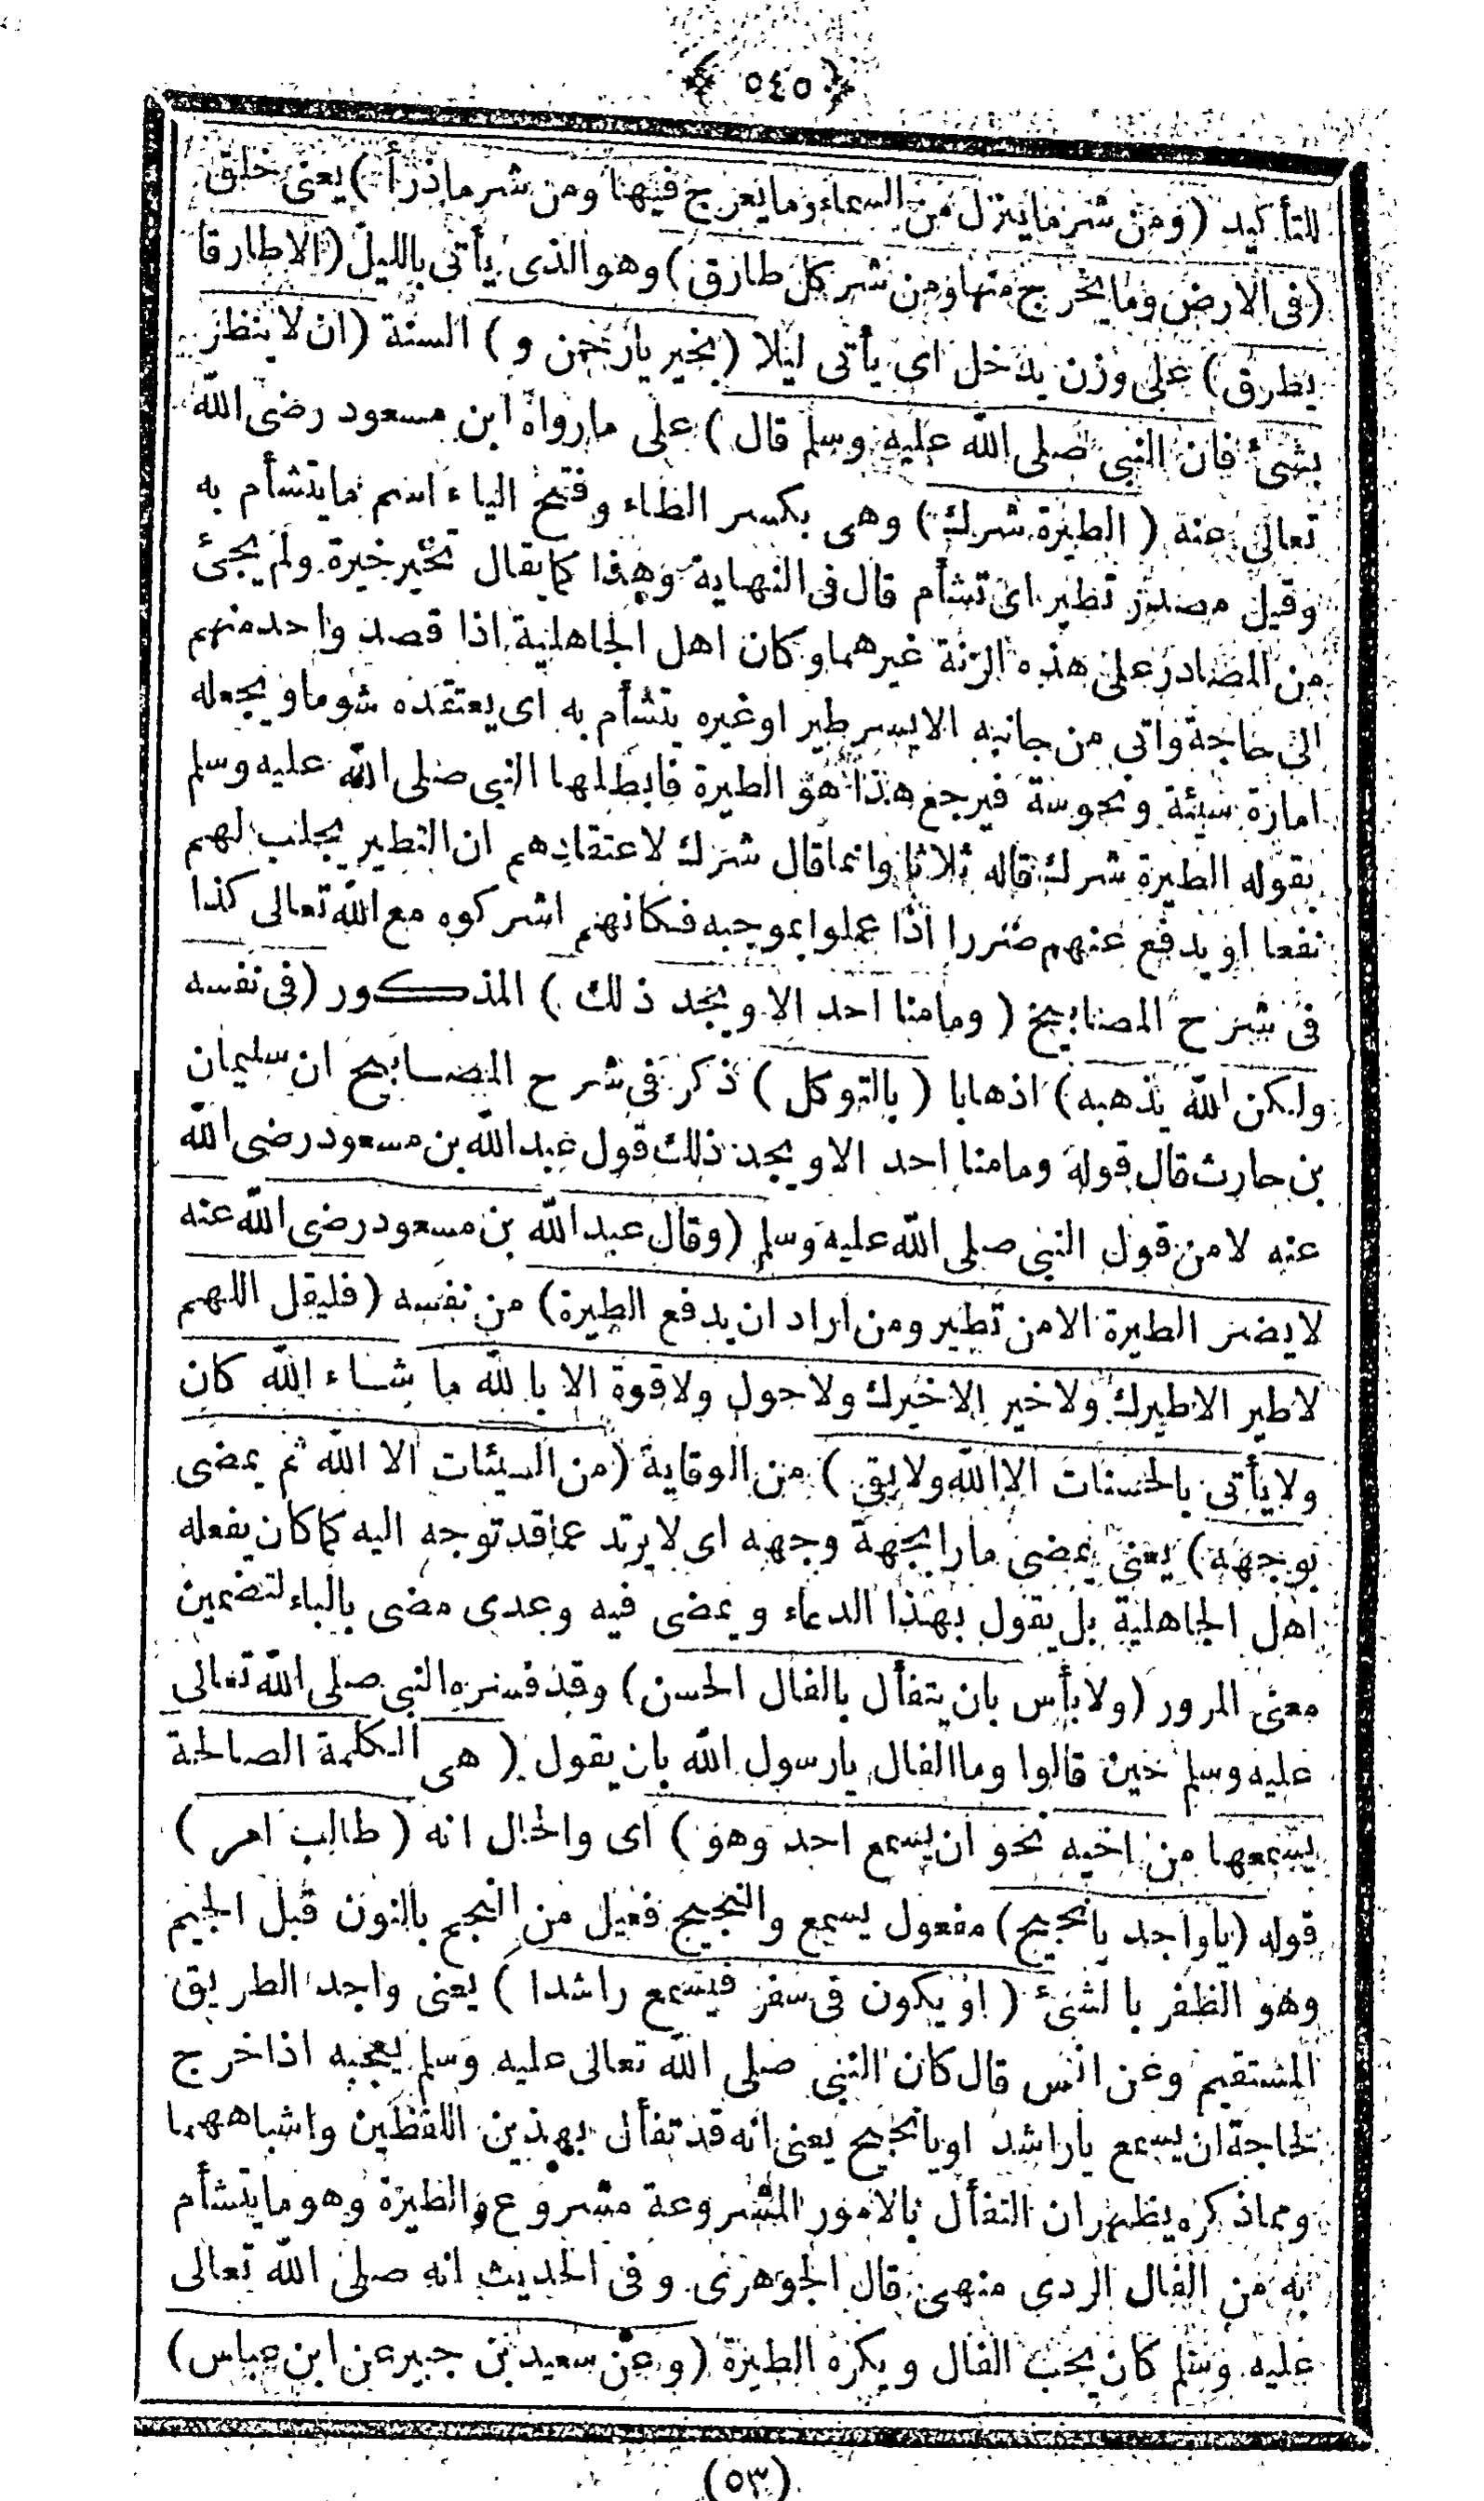 ﴿٥٤٥﴾
للتأكيد (ومن شر ما ينزل من السماء وما يعرج فيها ومن شر ما ذرأ) يعنى خلق
(فى الارض وما يخرج منها ومن شر كل طارق) وهو الذى يأتى بالليل (الا طارقا
يطرق) على وزن يدخل اى يأتى ليلا (بخير يا رحمن و) السنة (ان لا ينظر
بشئ فان النبى صلى الله عليه وسلم قال) على ما رواه ابن مسعود رضى الله
تعالى عنه (الطيرة شرك) وهى بكسر الطاء وفتح الياء اسم ما يتشأم به
وقيل مصدر تطير اى تشأم قال فى النهاية وهذا كما يقال تخير خيرة ولم يجئ
من المصادر على هذه الزنة غيرهما وكان اهل الجاهلية اذا قصد واحد منهم
الى حاجة واتى من جانبه الايسر طير او غيره يتشأم به اى يعتقده شوما ويجعله
امارة سيئة ونحوسة فيرجع هذا هو الطيرة فابطلها النبى صلى الله عليه وسلم
بقوله الطيرة شرك قاله ثلاثا وانما قال شرك لاعتقادهم ان التطير يجلب لهم
نفعا او يدفع عنهم ضررا اذا عملوا بموجبه فكانهم اشركوه مع الله تعالى كذا
فى شرح المصابيح (وما منا احد الا ويجد ذلك) المذكور (فى نفسه
ولكن الله يذهبه) اذهابا (بالتوكل) ذكر فى شرح المصابيح ان سليمان
بن حارث قال قوله وما منا احد الا ويجد ذلك قول عبد الله بن مسعود رضى الله
عنه لا من قول النبى صلى الله عليه وسلم (وقال عبد الله بن مسعود رضى الله عنه
لا يضر الطيرة الا من تطير ومن اراد ان يدفع الطيرة) من نفسه (فليقل اللهم
لا طير الا طيرك ولا خير الا خيرك ولا حول ولا قوة الا بالله ما شاء الله كان
ولا يأتى بالحسنات الا الله ولا يق) من الوقاية (من السيئات الا الله ثم يمضى
بوجهه) يعنى يمضى مارا بجهة وجهه اى لا يرتد عما قد توجه اليه كما كان يفعله
اهل الجاهلية بل يقول بهذا الدعاء ويمضى فيه وعدى مضى بالباء لتضمين
معنى المرور (ولا بأس بان يتفأل بالفال الحسن) وقد فسره النبى صلى الله تعالى
عليه وسلم حين قالوا وما الفال يا رسول الله بان يقول (هى الكلمة الصالحة
يسمعها من اخيه نحو ان يسمع احد وهو) اى والحال انه (طالب امر)
قوله (يا واجد يا نجيح) مفعول يسمع والنجيح فعيل من النجح بالنون قبل الجيم
وهو الظفر بالشئ (او يكون فى سفر فيسمع راشدا) يعنى واجد الطريق
المستقيم وعن انس قال كان النبى صلى الله تعالى عليه وسلم يعجبه اذا خرج
لحاجة ان يسمع يا راشد او يا نجيح يعنى انه قد تفأل بهذين اللفظين واشباههما
ومما ذكره يظهر ان التفأل بالامور المشروعة مشروع والطيرة وهو ما يتشأم
به من الفال الردى منهى قال الجوهرى وفى الحديث انه صلى الله تعالى
عليه وسلم كان يحب الفال ويكره الطيرة (وعن سعيد بن جبير عن ابن عباس)
(٥٣)